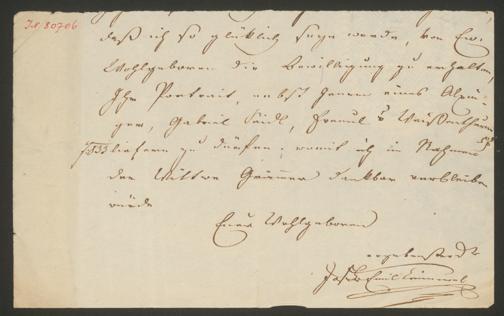 J.N. 80706
daß ich so glücklich seyn werde, von Ew.
Wohlgeboren die Bewilligung zu erhalten,
Ihr Portrait, nebst jenem eines
Gabriel Seidl, Weißenthurn
liefern zu dürfen; womit ich im Nahmen
der Wittwe dankbar verbleiben
würde
Euer Wohlgeboren
ergebenster